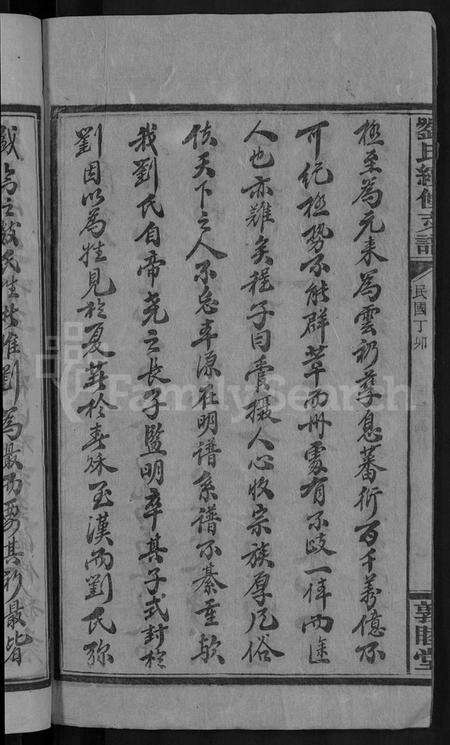 劉氏續修支譜
民國丁卯
敦睦堂
極至為元來為雲礽孳息蕃衍百千萬億不
可紀極勢不能群萃而州處有不歧一体而途
人也亦難矣程子曰管攝人心收宗族厚風俗
使天下之人不忘本源在明譜系譜不綦重歟
我劉氏自帝堯之長子監明卒其子式封於
劉因以為姓見於夏蕃於春秋至漢而劉氏弥
盛為之故氏姓劉為最而其
FamilySearch